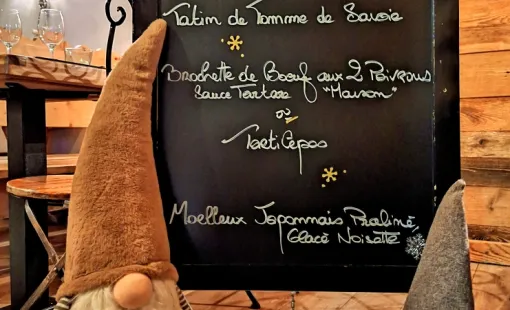 Tatin de Tomme de Savoie
Brochette de Boeuf aux 2 Poivrons
Sauce Tartare "Maison"
ou
TartiCepes
Moelleux Japonnais Praliné,
Glace Noisette